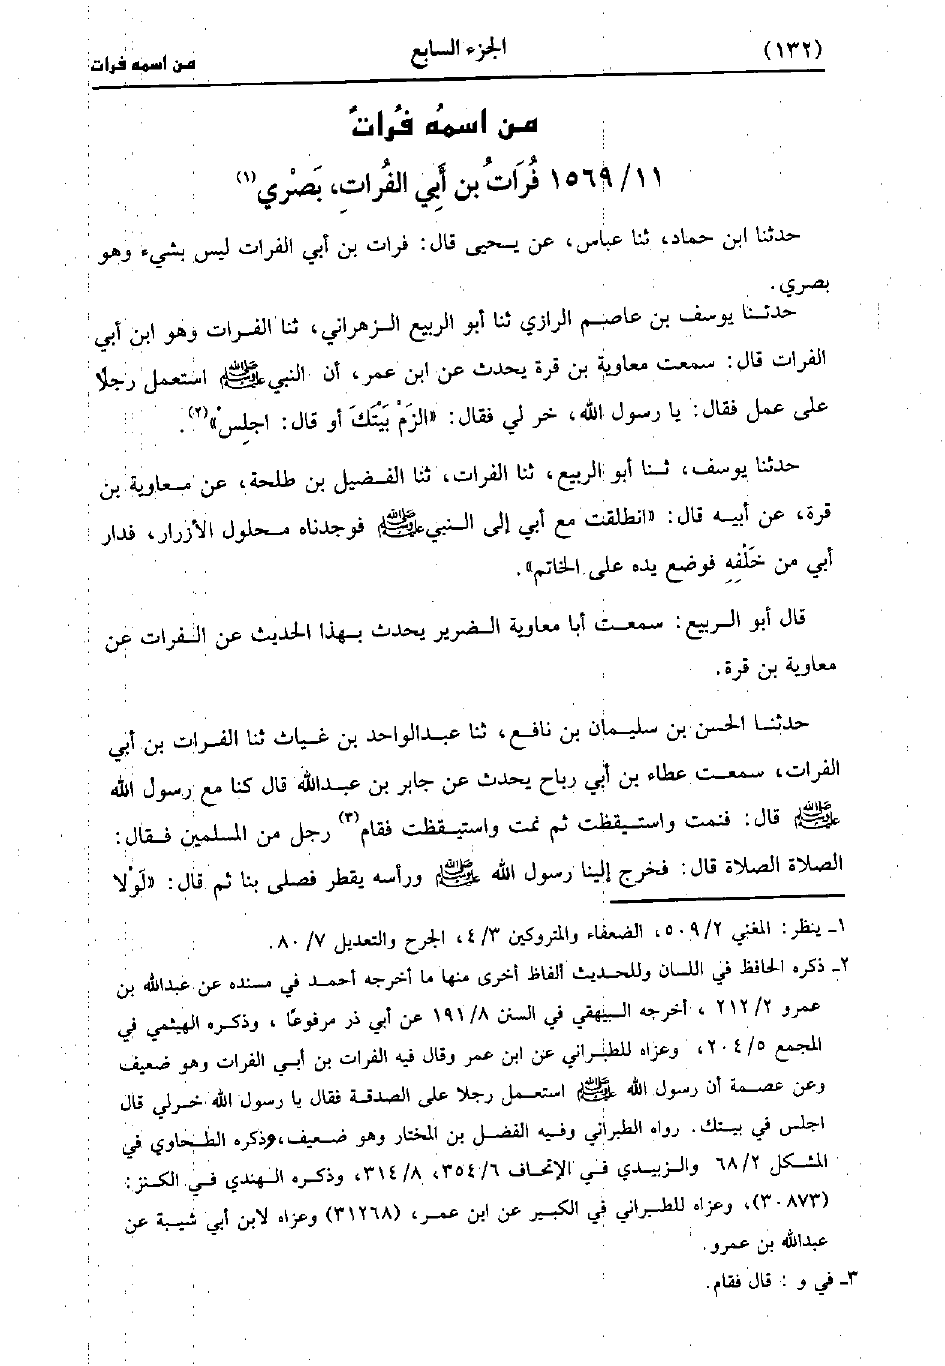 (١٣٢) الجزء السابع من اسمه فرات
من اسمُه فُراتً
١٥٦٩/١١ فُرَاتُ بن أَبِي الفُراتِ، بَصْرِي(١)
حدثنا ابن حماد، ثنا عباس، عن يحيى قال: فرات بن أبي الفرات ليس بشيء وهو
بصري.
حدثنا يوسف بن عاصم الرازي ثنا أبو الربيع الزهراني، ثنا الفرات وهو ابن أبي
الفرات قال: سمعت معاوية بن قرة يحدث عن ابن عمر، أن النبي ﷺ استعمل رجلًا
على عمل فقال: يا رسول الله، خر لي فقال: «الزَمْ بَيْتَكَ أو قال: اجلِسْ»(٢).
حدثنا يوسف، ثنا أبو الربيع، ثنا الفرات، ثنا الفضيل بن طلحة، عن معاوية بن
قرة، عن أبيه قال: «انطلقت مع أبي إلى النبي ﷺ فوجدناه محلول الأزرار، فدار
أبي من خَلْفِهِ فوضع يده على الخاتم».
قال أبو الربيع: سمعت أبا معاوية الضرير يحدث بهذا الحديث عن الفرات عن
معاوية بن قرة.
حدثنا الحسن بن سليمان بن نافع، ثنا عبدالواحد بن غياث ثنا الفرات بن أبي
الفرات، سمعت عطاء بن أبي رباح يحدث عن جابر بن عبدالله قال كنا مع رسول الله
ﷺ قال: فنمت واستيقظت ثم نمت واستيقظت فقام(٣) رجل من المسلمين فقال:
الصلاة الصلاة قال: فخرج إلينا رسول الله ﷺ ورأسه يقطر فصلى بنا ثم قال: «لَوْلا
١ـ ينظر: المغني ٥٠٩/٢، الضعفاء والمتروكين ٤/٣، الجرح والتعديل ٨٠/٧.
٢ـ ذكره الحافظ في اللسان وللحديث ألفاظ أخرى منها ما أخرجه أحمد في مسنده عن عبدالله بن
عمرو ٢١٢/٢ ، أخرجه البيهقي في السنن ١٩١/٨ عن أبي ذر مرفوعًا ، وذكره الهيثمي في
المجمع ٢٠٤/٥، وعزاه للطبراني عن ابن عمر وقال فيه الفرات بن أبي الفرات وهو ضعيف
وعن عصمة أن رسول الله ﷺ استعمل رجلا على الصدقة فقال يا رسول الله خرلي قال
اجلس في بيتك. رواه الطبراني وفيه الفضل بن المختار وهو ضعيف، وذكره الطحاوي في
المشكل ٦٨/٢ والزبيدي في الإتحاف ٣٥٤/٦، ٣١٤/٨، وذكره الهندي في الكنز:
(٣٠٨٧٣)، وعزاه للطبراني في الكبير عن ابن عمر، (٣١٢٦٨) وعزاه لابن أبي شيبة عن
عبدالله بن عمرو.
٣ـ في و : قال فقام.